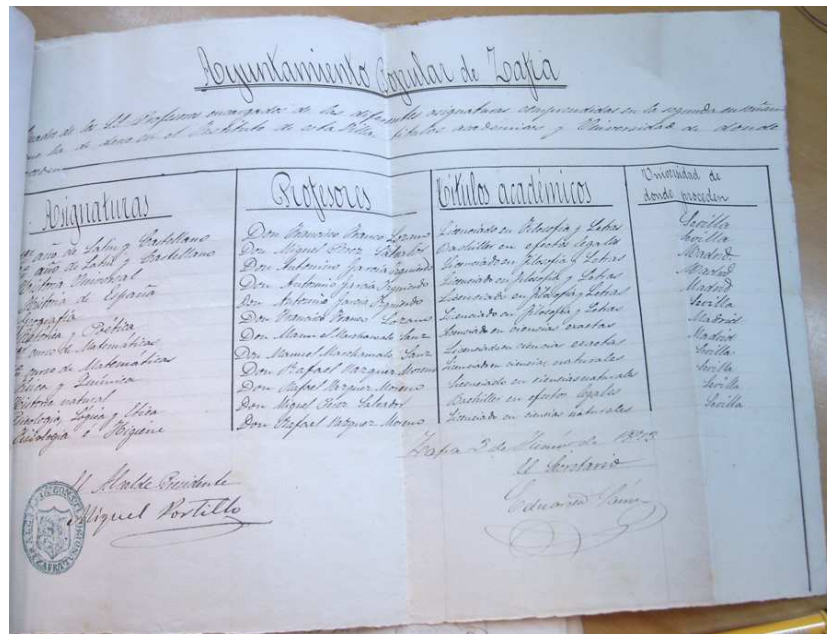 Ayuntamiento Popular de Zafra
Cuadro de los Profesores encargados de las diferentes asignaturas comprendidas en la segunda enseñanza
que ha de darse en el Instituto de esta Villa, títulos académicos y Universidad de donde
proceden
Asignaturas Profesores Títulos académicos Universidad de donde proceden
1er año de Latin y Castellano Don Francisco Franco Lozano Licenciado en Filosofía y Letras Sevilla
2º año de Latin y Castellano Don Miguel Perez Salvador Bachiller en efectos legales Sevilla
Historia Universal Don Antonino Garcia Izquierdo Licenciado en filosofía y Letras Madrid
Historia de España Don Antonino Garcia Izquierdo Licenciado en filosofía y Letras Madrid
Geografía Don Antonino Garcia Izquierdo Licenciado en filosofía y Letras Madrid
Retórica y Poética Don Francisco Franco Lozano Licenciado en filosofía y Letras Sevilla
1er curso de Matemáticas Don Manuel Marchamalo Sanz Licenciado en ciencias exactas Madrid
2º curso de Matemáticas Don Manuel Marchamalo Sanz Licenciado en ciencias exactas Madrid
Física y Química Don Rafael Vazquez Moreno Licenciado en ciencias naturales Sevilla
Historia natural Don Rafael Vazquez Moreno Licenciado en ciencias naturales Sevilla
Psicología, Lógica y Etica Don Miguel Perez Salvador Bachiller en efectos legales Sevilla
Fisiología é Higiene Don Rafael Vazquez Moreno Licenciado en ciencias naturales Sevilla
Zafra 3 de de
El Alcalde Presidente
Miguel Portillo
El Secretario
Eduardo